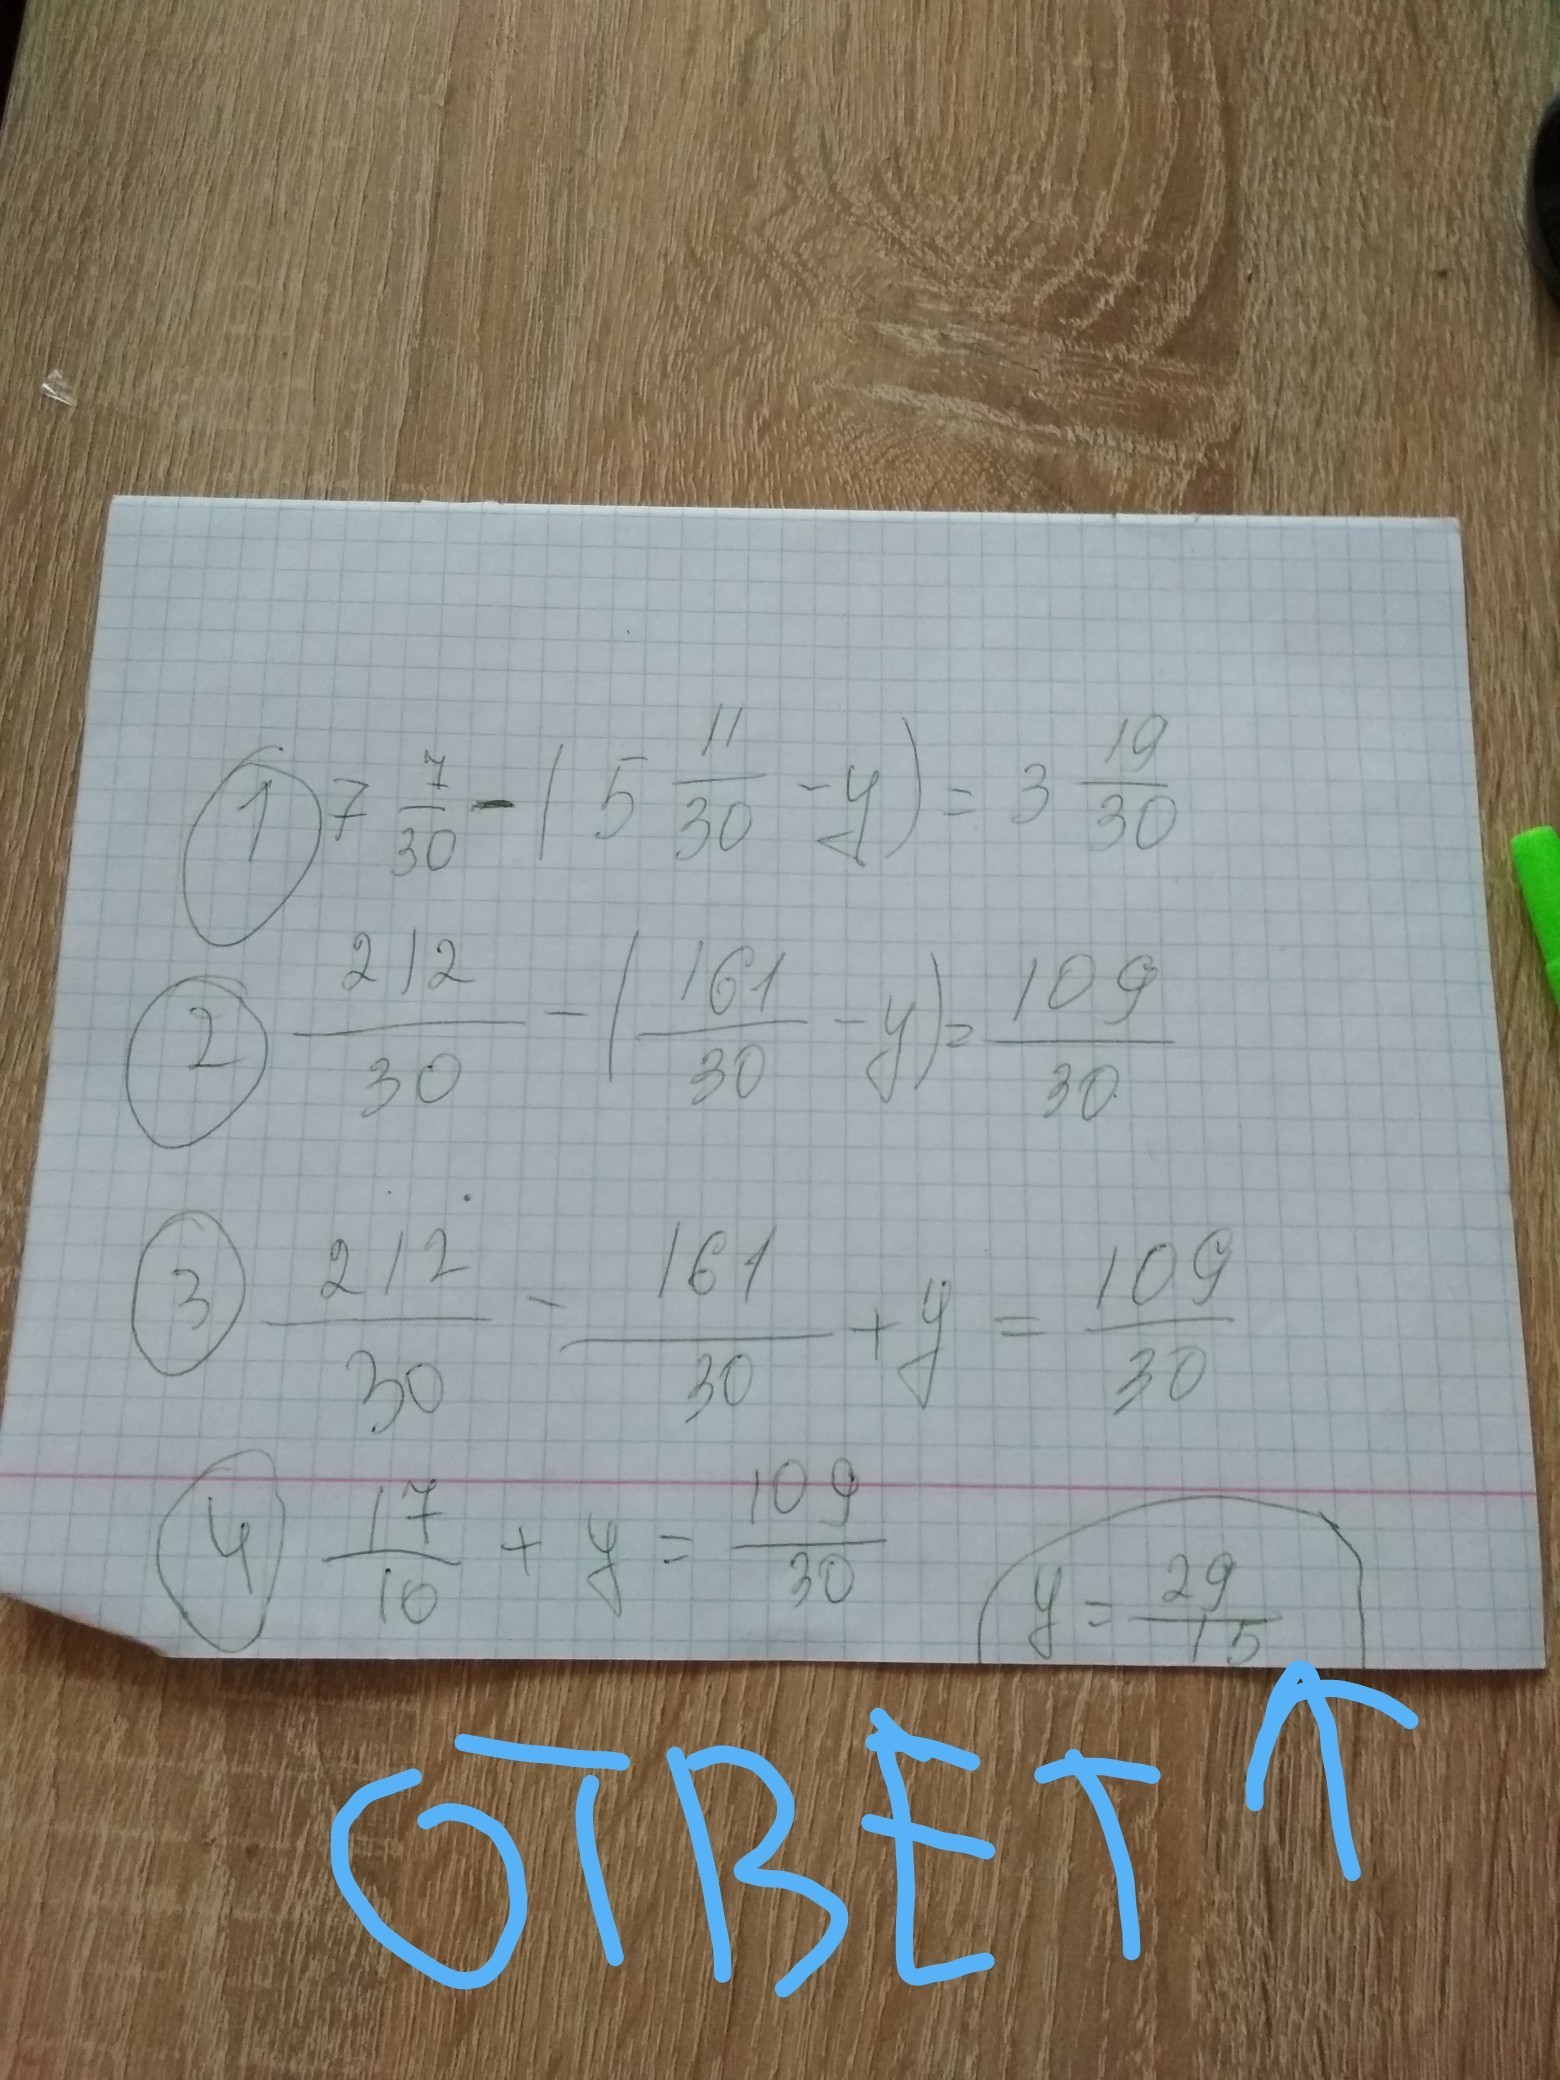 1 7 7/30 - (5 11/30 - y) = 3 19/30
2 212/30 - (161/30 - y) = 109/30
3 212/30 - 161/30 + y = 109/30
4 17/10 + y = 109/30
y = 29/15
ОТВЕТ ↑